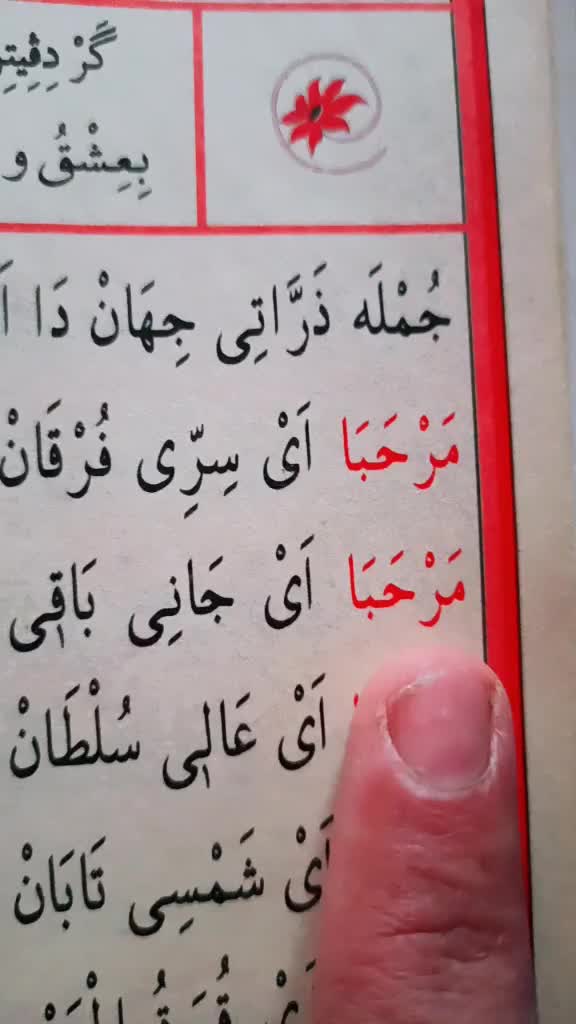 گَرْ
بِعِشْقُ و
جُمْلَه ذَرَّاتِی جِهَانْ دَا
مَرْحَبَا اَیْ سِرِّی فُرْقَانْ
مَرْحَبَا اَیْ جَانِی بَاقِی
اَیْ عَالِی سُلْطَانْ
اَیْ شَمْسِی تَابَانْ